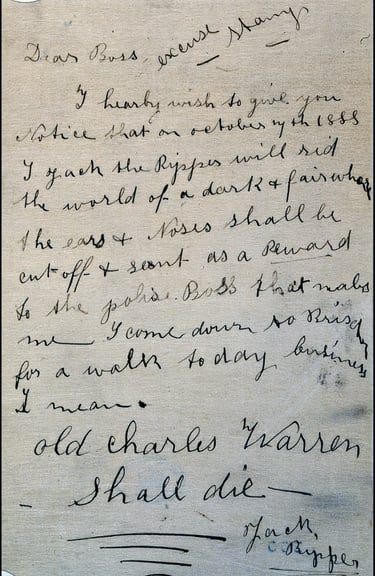 Dear Boss, excuse stamp
I hearby wish to give you
Notice that on october 7th 1888
I Jack the Ripper will rid
the world of a dark & fair whore
the ears & Noses shall be
cut off & sent as a Reward
to the police. Boss that makes
me I come down to
for a walk today business
I mean.
old Charles Warren
Shall die
Jack
Ripper